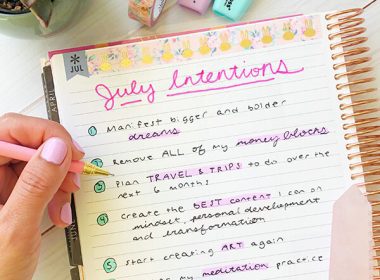 JUL
July Intentions
APRIL
1 Manifest bigger and bolder
dreams
2 Remove ALL of my money blocks
3 Plan TRAVEL & TRIPS to do over the
next 6 months
4 Create the BEST content I can on
mindset, personal development
and transformation
5 Start creating ART again
my meditation practice
JUNE